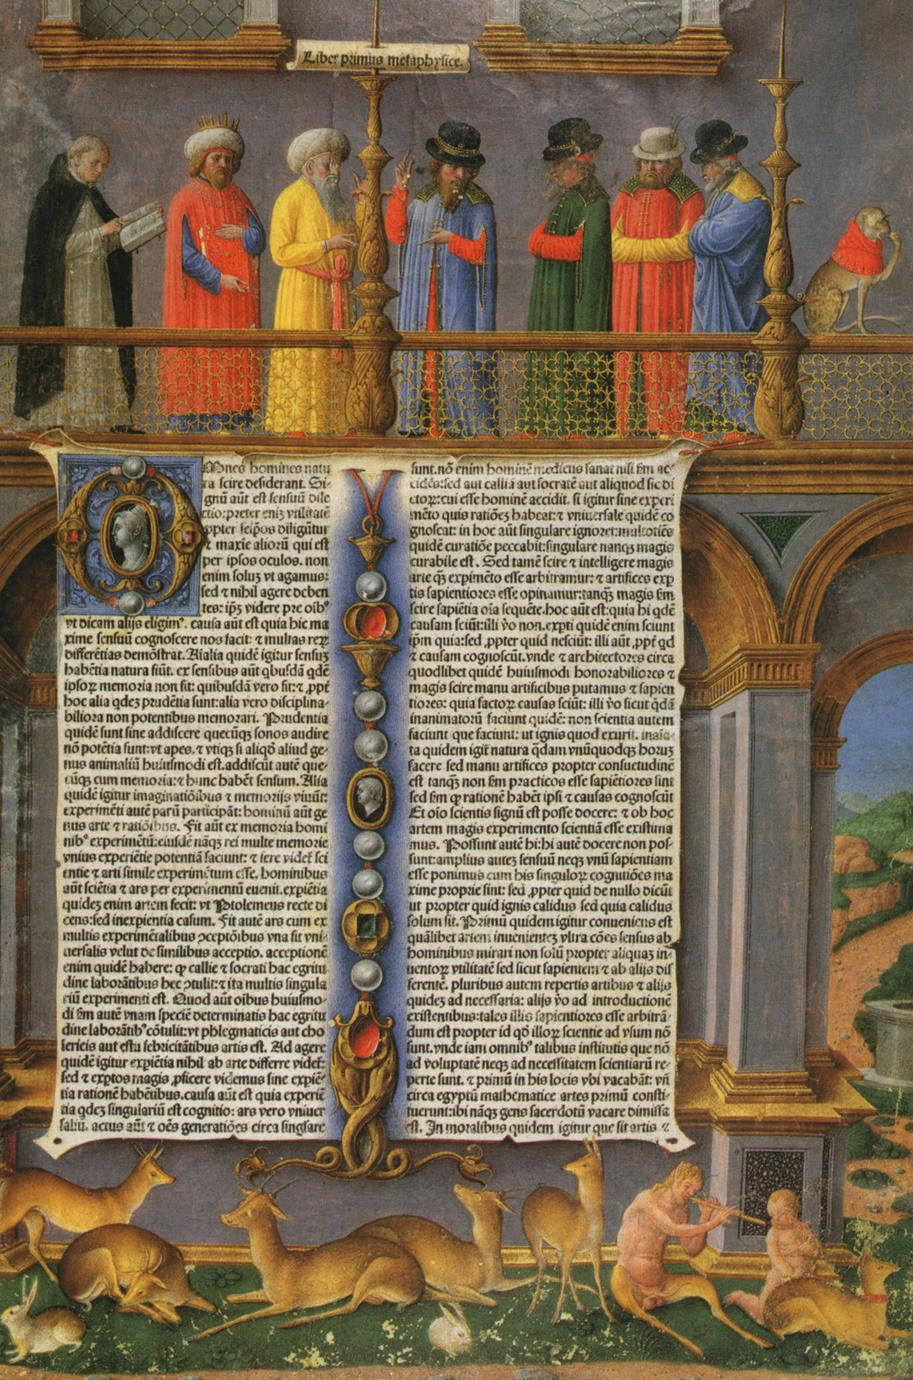 Liber primus metaphysice.
Omnes homines natu
ra scire desiderant. Si-
gnũ aũt est sensuũ dile-
ctio: preter eniʒ vtilitatẽ
propter seipsos diligũtur
⁊ maxie aliorũ qui est
per ipsos oculos. non
enim soluʒ vt agamus:
sed ⁊ nihil agere deben
tes: ipʒ videre pre oibꝰ
vt dicam alijs eligimꝰ. causa aũt est quia hic ma
xime sensuũ cognoscere nos facit: ⁊ multas reꝝ
differẽtias demõstrat. Aialia quidẽ igitur sensuʒ
habẽtia natura fiũt. ex sensibus aũt qbusdã qdẽ
ipsoꝝ memoria non fit: quibusdã vero fit: ⁊ ,ppt
hoc alia qdeʒ prudẽtia sunt: alia vero disciplina-
biliora non potentibus memorari. Prudentia
quidẽ sunt sine addiscere quecũqʒ sonos audire
nõ potẽtia sunt: vt apes. ⁊ vtiqʒ si aliqõ aliud ge-
nus animaliũ huiusmodi est. addiscũt autẽ que-
cũqʒ cum memoria: ⁊ hunc habẽt sensum. Alia
quidẽ igitur imaginatiõibus ⁊ memorijs viuũt:
experimẽti autẽ parũ participãt: hominũ aũt ge
nus arte ⁊ ratiõibus. Fit aũt ex memoria homi
nibꝰ experimẽtũ: eiusdẽ nãqʒ rei multe memorie
vnius experiẽtie potentiã faciunt: ⁊ fere videt sci
entie ⁊ arti simile experimẽtum esse. hominibus
aũt sciẽtia ⁊ ars per experimẽtũ euenit. expiẽtia
quideʒ enim artem fecit: vt Ptolemeus recte di
cens: sed inexpientia casum. Fit autẽ ars cum ex
multis experimẽtalibus ↄceptõibus vna fit vni-
uersalis velut de similibus acceptio. acceptionẽ
enim quidẽ habere: ꝙ callie ⁊ socrati hac egritu
dine laborãtibus hec ↄtulit: ⁊ ita multis singula
riũ experimenti est. Quod aũt oibus huiusmo-
di fm vnam speciẽ determinatis hac egritu
dine laborãtibꝰ cõtulit: vt phlegmaticis aut cho
lericis aut estu febricitãtibus artis est. Ad agere
quidẽ igitur expiẽtia nihil ab arte differre videt:
sed ⁊ exptos magis ,pficere videmus sine expiẽ-
tia rationẽ habentibus. causa aũt est quia experiẽ
tia qdeʒ singulariũ est cognitio: ars vero vniuer
saliũ. actus aũt ⁊ oẽs generatiões circa singulare
sunt. nõ enim hominẽ medicus sanat nisi fm ac-
cidẽs: sed aut callia aut socratẽ aut aliquod sic di
ctoꝝ: cui esse hominẽ accidit. si igitur sine experi
mẽto quis ratiõeʒ habeat: ⁊ vniuersale quidẽ co
gnoscat: in hoc aũt singulare ignoret: multotiẽs
quidẽ curatiõe peccabit: singulare nanqʒ magis
curabile est. Sed tamẽ scire ⁊ intelligere magis
arte qʒ expimẽto esse arbitramur: ⁊ artifices exp
tis sapiẽtiores esse opinamur: tanqʒ magis fm
scire sapiẽtia oia sequẽte. hoc aũt est: quia hi qdẽ
causam sciũt: illi ỹo non. expti quidẽ enim quia
ipm quia: sed ,ppter quid nesciũt: illi aũt ,ppt qd
⁊ causam cognoscũt. vnde ⁊ architectores circa
quodlibet quidẽ huiusmodi honorabiliores ⁊
magis scire manu artificibus putamus ⁊ sapien
tiores: quia factoꝝ causas sciũt: illi ỹo sicut qdã
inanimatorũ faciunt quidẽ: non scientia autem
faciunt que faciunt: ut ignis quod exurit. inaia-
ta quidem igit natura qdam vnũquodqʒ horuʒ
facere sed manu artifices propter consuetudinẽ
est tanqʒ non fm practicos esse sapiẽtiores sint
sed fm ꝙ rationẽ habẽt ipsi ⁊ causas cognoscũt
Et oio scientis signũ est posse docere: ⁊ ob hoc
artem magis experimento scientiã esse existima
mus. Possunt autẽ hi: hi autẽ docere non pos
sunt: amplius auteʒ sensuũ neqʒ vnũ sapientiam
esse ponimus cum his singuloꝝ cognitiões ma
xime proprie sint: sed ,ppter quid de nullo dicũt
ut propter quid ignis calidus sed quia calidus
solum sit. Primũ quidem igitur conueniens est
quãlibet artem inuenienteʒ vltra cões sensus ab
hominibus mirari non solũ propter aliquaʒ in-
uentoꝝ vtilitatẽ sed sicut sapientem ⁊ ab alijs dif
ferentẽ. pluribus autem repertis artibus ⁊ alijs
quideʒ ad necessaria: alijs ỹo ad introductionẽ
existentibus: tales illis sapientiores esse arbitrã-
dum est propter id qõ illoꝝ scientie ad vsum nõ
sunt. vnde iam omnibꝰ talibus institutis que nõ
ad voluptatẽ neqʒ ad necessitatem scientiarũ re-
perte sunt. ⁊ primũ in his locis vbi vacabãt: vñ
circa egyptũ mathematice artes primũ consti-
tuerunt: ibi nãqʒ gens sacerdotũ vacare dimissa
est. In moralibus quidem igitur que sit artis ⁊